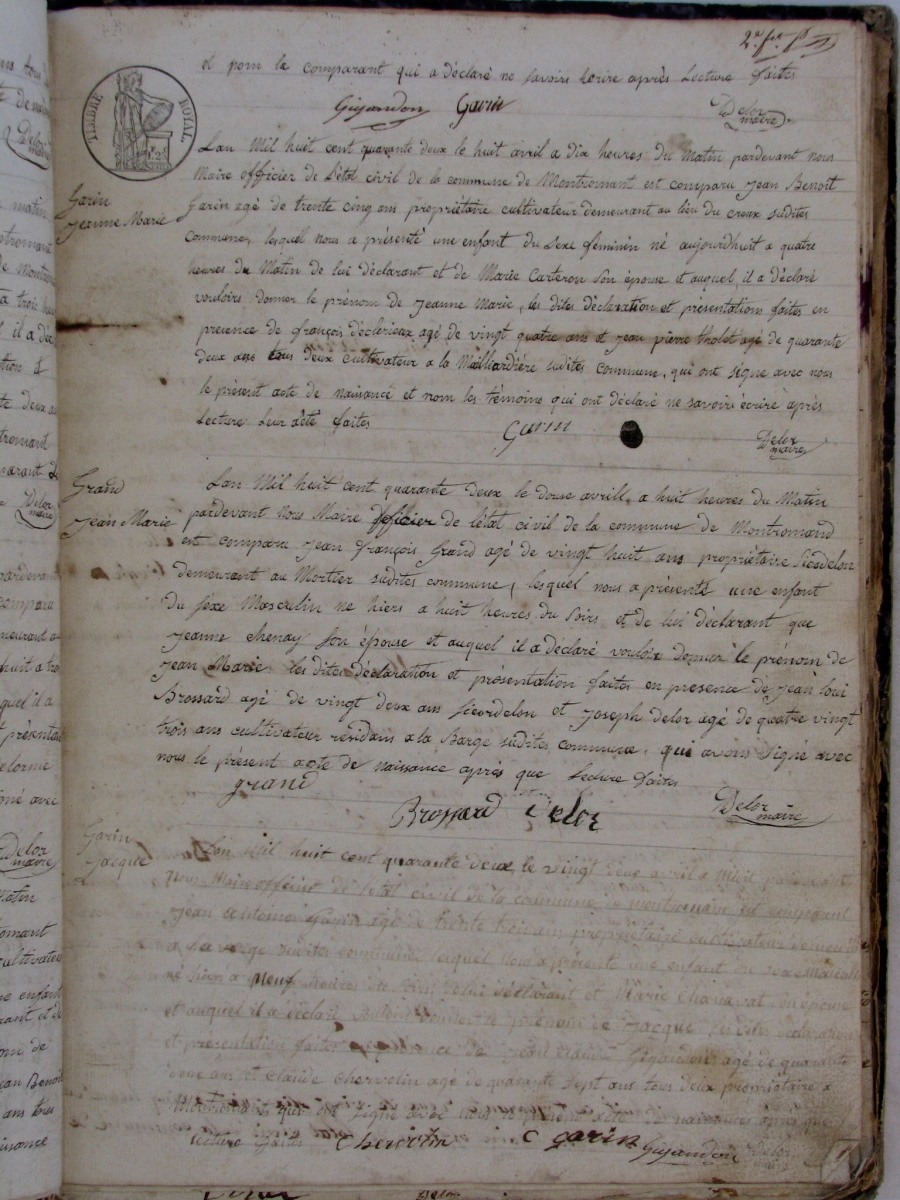 2e ft
et pom le comparant qui a déclaré ne savoirs écrire après Lecture faites
Gujandon Garin Delor maire
TIMBRE ROYAL
Lan Mil huit cent quarante deux le huit avril a dix heures du Matin pardevant nous
Garin
Jeanne Marie
Maire officier de L'état civil de la commune de Montromant est comparu Jean Benoit
Garin agé de trente cinq ans propriétaire cultivateur demeurant au lieu du creux sudites
commune, lesquel nous a présenté une enfant du Sexe feminin né aujourdhuit a quatre
heures du Matin de lui déclarant et de Marie Carteron son épouse et auquel, il a déclaré
vouloirs donner le prénom de Jeanne Marie, les dites déclaration et présentations faites en
presence de françois déclerieux agé de vingt quatre ans et Jean pierre tholot agé de quarante
deux ans tous deux cultivateur a la Milliardière sudites commune, qui ont signe avec nous
le présent acte de naisance et nom les témoins qui ont déclaré ne savoir écrire après
Lecture Leur a été faites
Garin Delor maire
Grand
Jean Marie
Lan Mil huit cent quarante deux le douse avrill, a huit heures du Matin
pardevant Nous Maire officier de l'état civil de la commune de Montromand
est comparu Jean françois Grand agé de vingt huit ans propriétaire
demeurant au Mortier sudites commune, lesquel nous a présenté une enfant
du Sexe Masculin ne hiers a huit heures du Soirs et de lui déclarant que
Jeanne chenay son épouse et auquel il a déclaré vouloir donner le prénom de
Jean Marie les dites déclaration et présentation faites en presence de Jean loui
Brossard agé de vingt deux ans et Joseph delor agé de quatre vingt
trois ans cultivateur residans a la Barge sudites commune, qui avons signé avec
nous le présent acte de naissance après que Lecture faites
grand Brossard Delor Delor maire
Garin
Jacque
Lan Mil huit cent quarante deux le vingt deux avril a Midi pardevant
nous Maire officier de l'état civil de la commune de montromant est comparant
Jean antoine Garin agé de trente trois ans propriétaire cultivateur
a La verge sudites commune lesquel Nous a présenté une enfant du sexe Masculin
né hiers a Neuf heures du Soirs de lui déclarant et Marie son épouse
et auquel il a déclaré vouloirs donner le prénom de Jacque les dites déclaration
et présentation faites presence de Jean claude Gujandon agé de quarante
deux ans et claude chervolin agé de quarante sept ans tous deux propriétaire a
Montromant qui ont Signé avec nous le présent acte de naissance après que
lecture faites Chervolin C garin Gujandon Delor maire